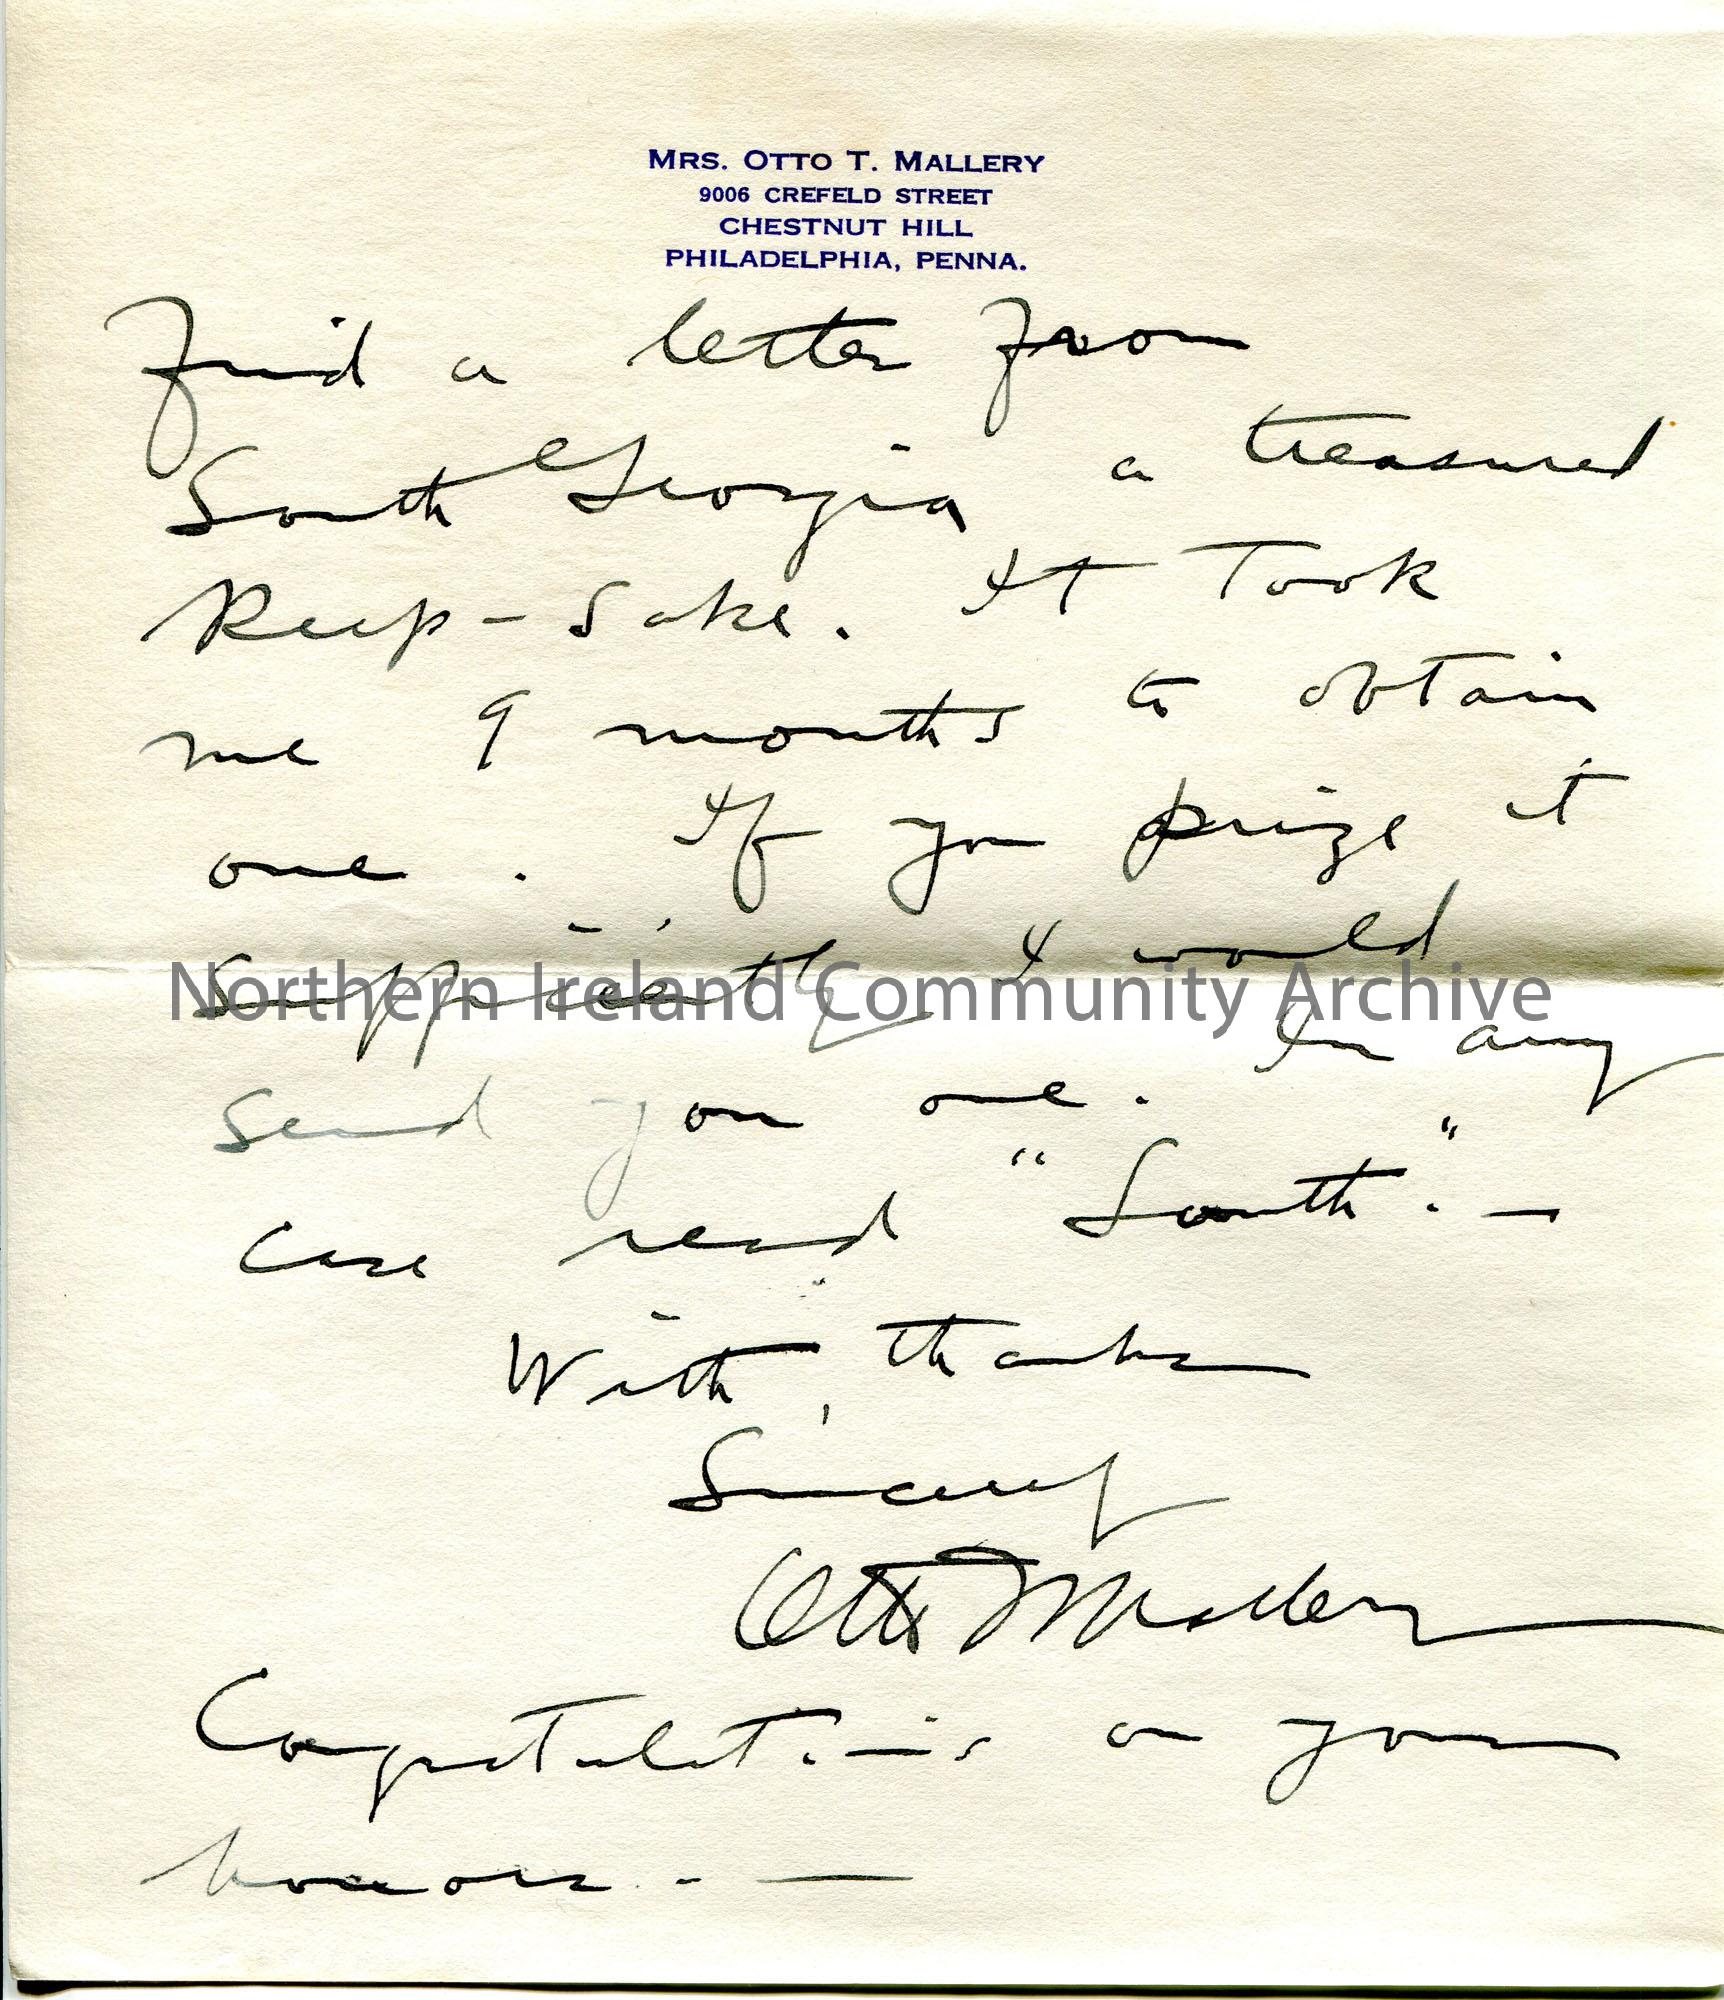 MRS. OTTO T. MALLERY
9006 CREFELD STREET
CHESTNUT HILL
PHILADELPHIA, PENNA.
find a letter from
South Georgia a treasured
Keep-Sake. It took
me 9 months to obtain
one. If you prize it
sufficiently I would
Northern Ireland Community Archive
send you one. In any
case read "South". —
With thanks
Sincerely
Otto Mallery
Congratulations on your
honors. —